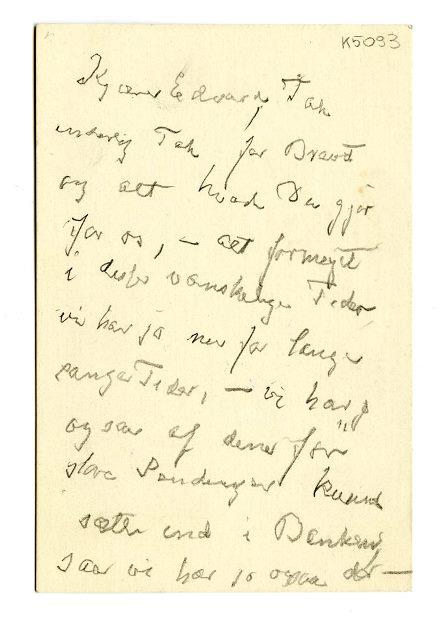 K5093
Kjære Edvard, Tak
inderlig Tak for Brevet
og alt hvad Du gjør
for os, – alt formeget
i disse vanskelige Tider
vi har jo nu for lange
Tider, – vi har jo
ogsaa af denne før
store kunnet
sætte ind i Banken
saa vi har jo ogsaa det –